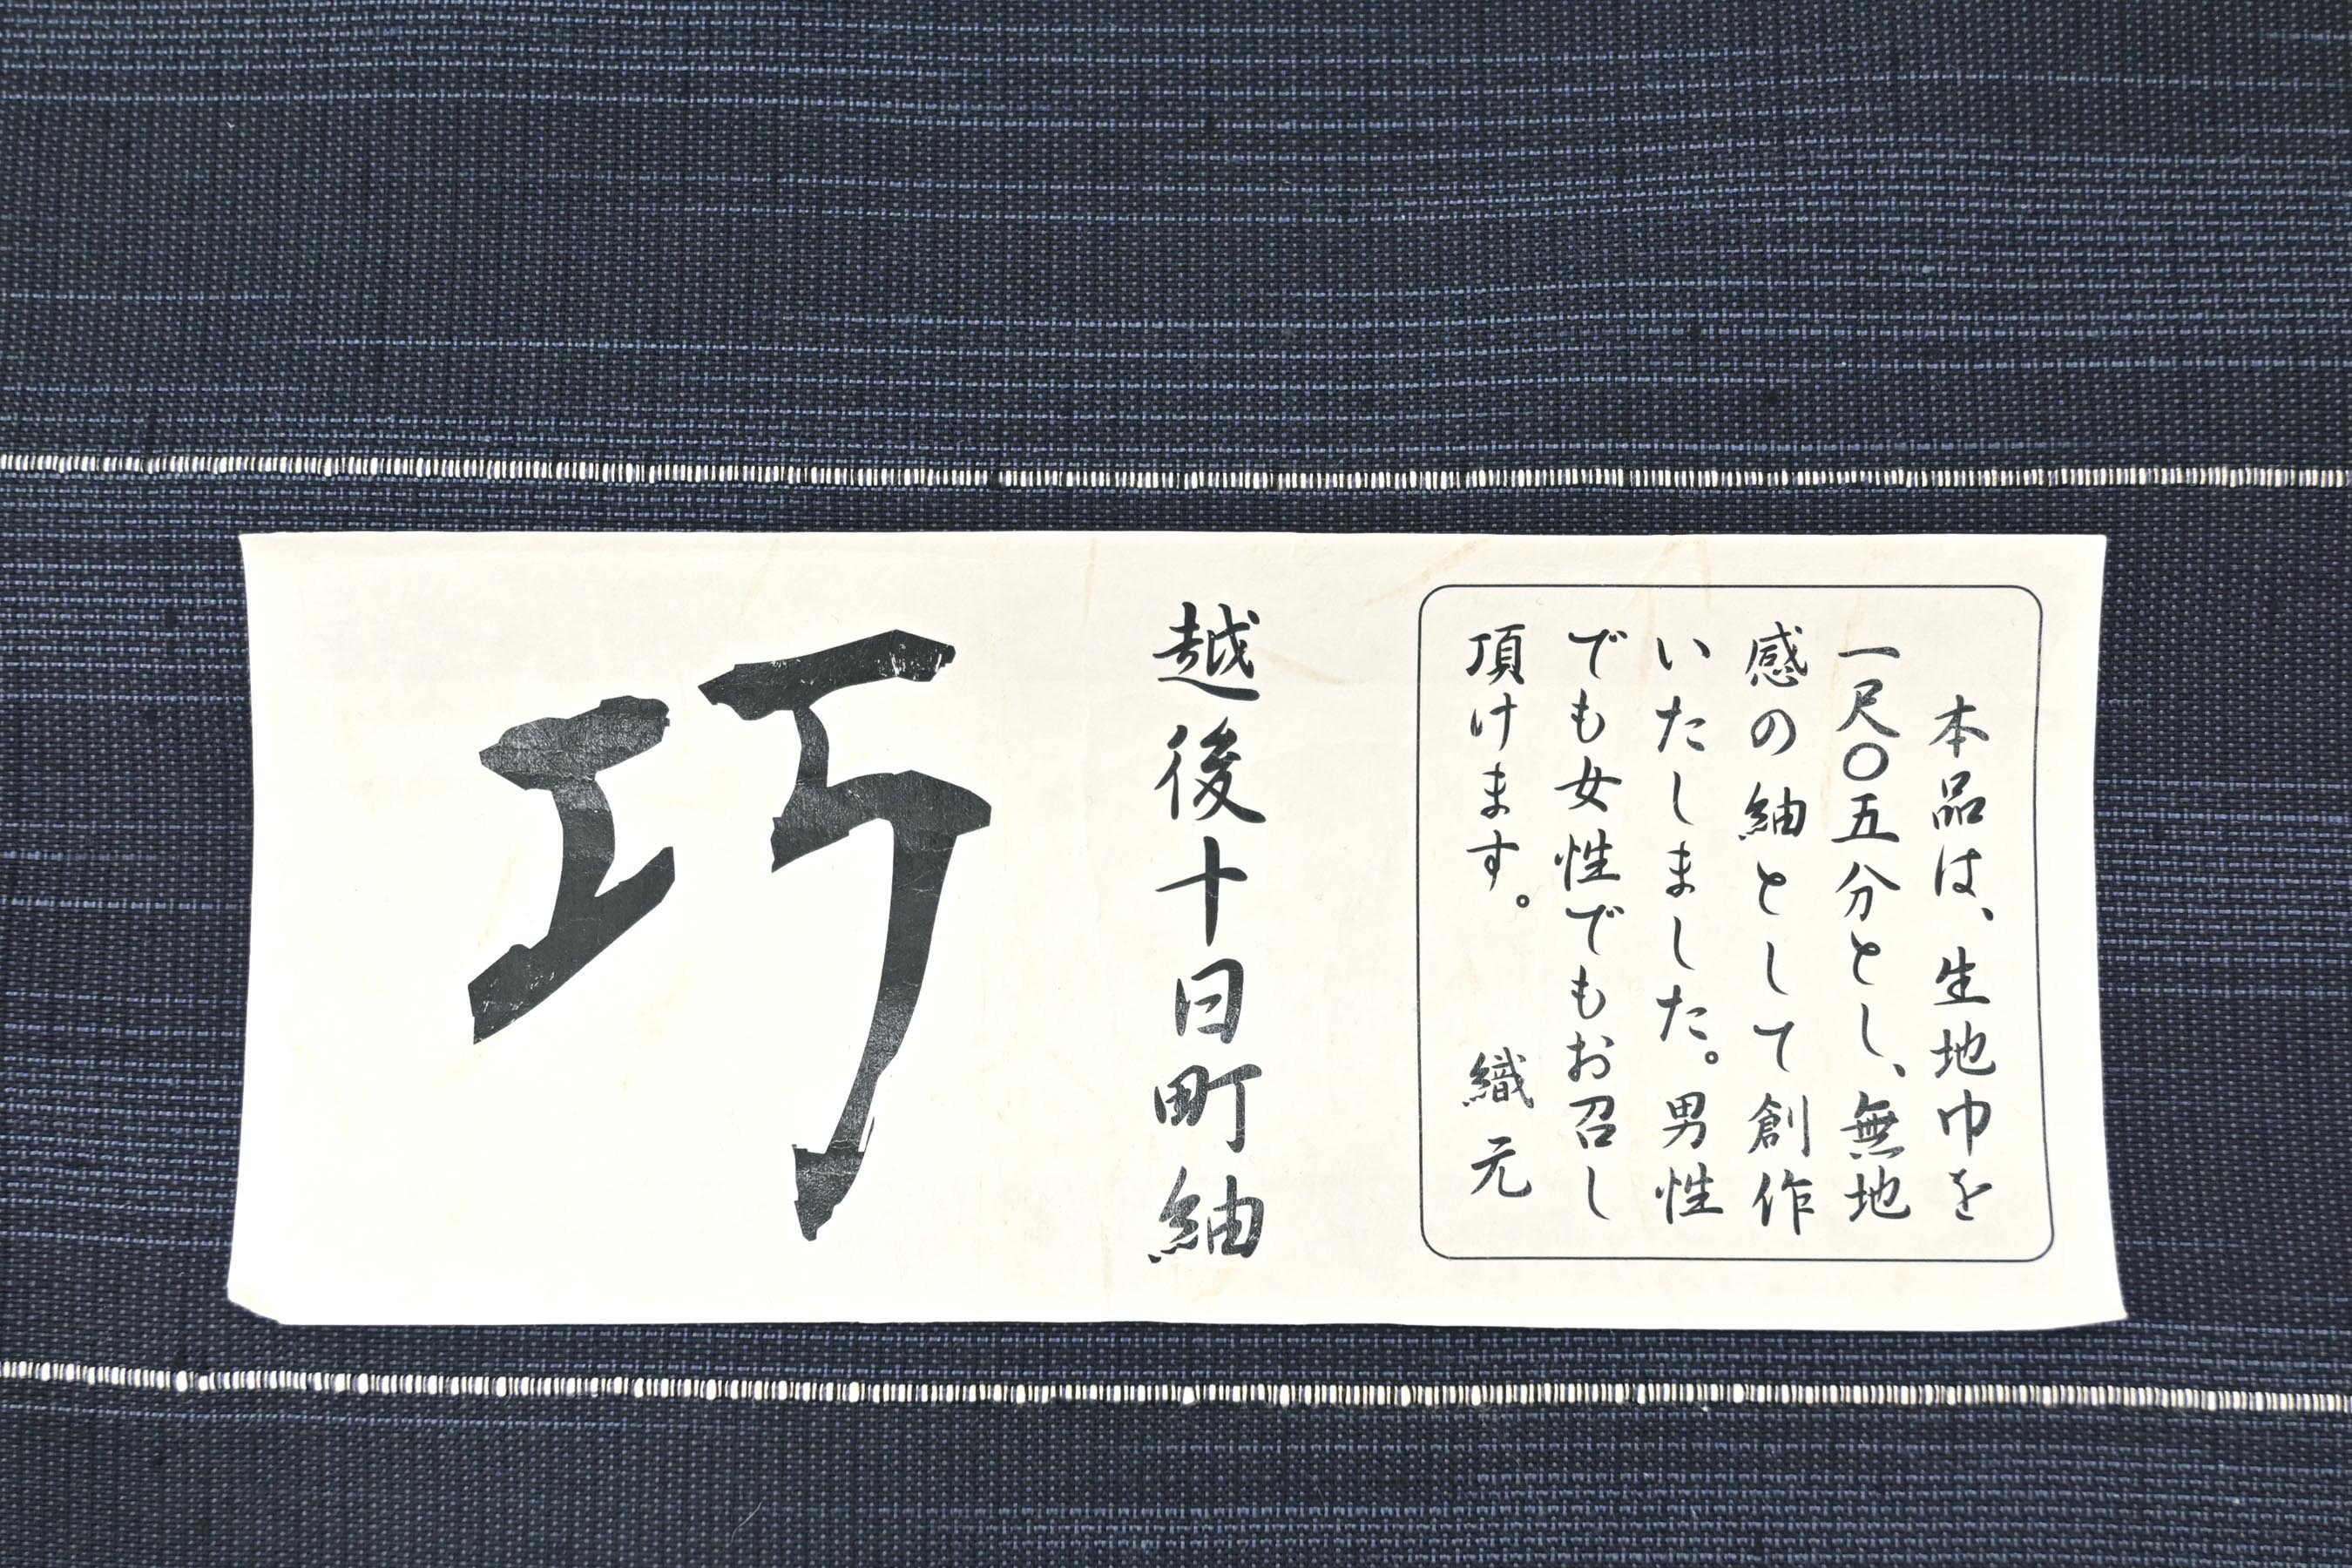 本品は、生地巾を
一尺〇五分とし、無地
感の紬として創作
いたしました。男性
でも女性でもお召し
頂けます。　織元
越後十日町紬
巧